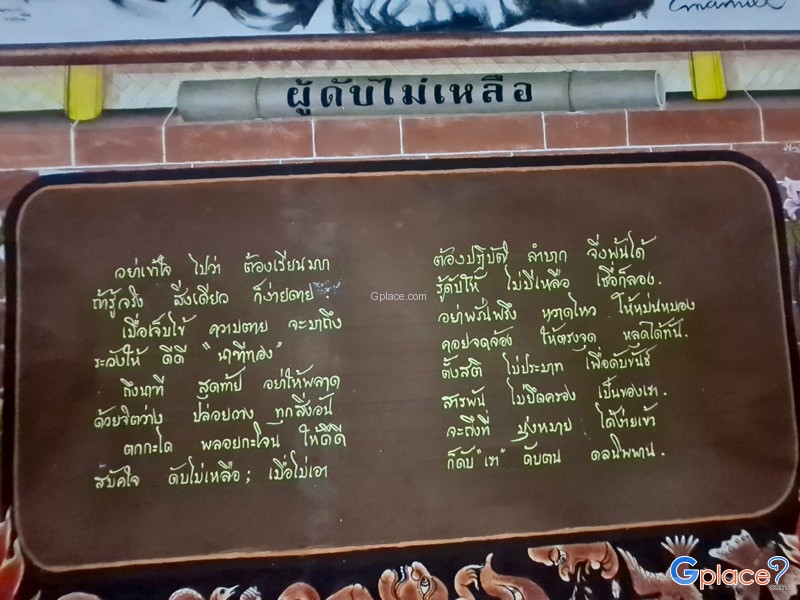 Emanuel
ผู้ดับไม่เหลือ
อย่าเข้าใจ ไปว่า ต้องเรียนมาก
ต้องปฏิบัติ ลำบาก จึงพ้นได้
ถ้ารู้จริง สิ่งเดียว ก็ง่ายดาย
รู้ดับให้ ไม่มีเหลือ เชื่อก็ลอง.
เมื่อเจ็บไข้ ความตาย จะมาถึง
อย่าพรั่นพรึง หวาดไหว ให้หม่นหมอง
ระวังให้ ดีดี "นาฑีทอง"
คอยจดจ้อง ให้ตรงจุด หลุดได้ทัน.
ถึงนาที สุดท้าย อย่าให้พลาด
ตั้งสติ ไม่ประมาท เพื่อดับขันธ์
ด้วยจิตว่าง ปล่อยวาง ทุกสิ่งอัน
สารพัน ไม่ยึดครอง เป็นของเรา.
ตกกะได พลอยกะโจน ให้ดีดี
จะถึงที่ มุ่งหมาย ได้ง่ายเข้า
สมัคใจ ดับไม่เหลือ; เมื่อไม่เอา
ก็ดับ "เรา" ดับตน ดลนิพพาน.
Gplace.com
Gplace?.com